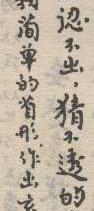 認不出，猜不透的
简单的首形，作出